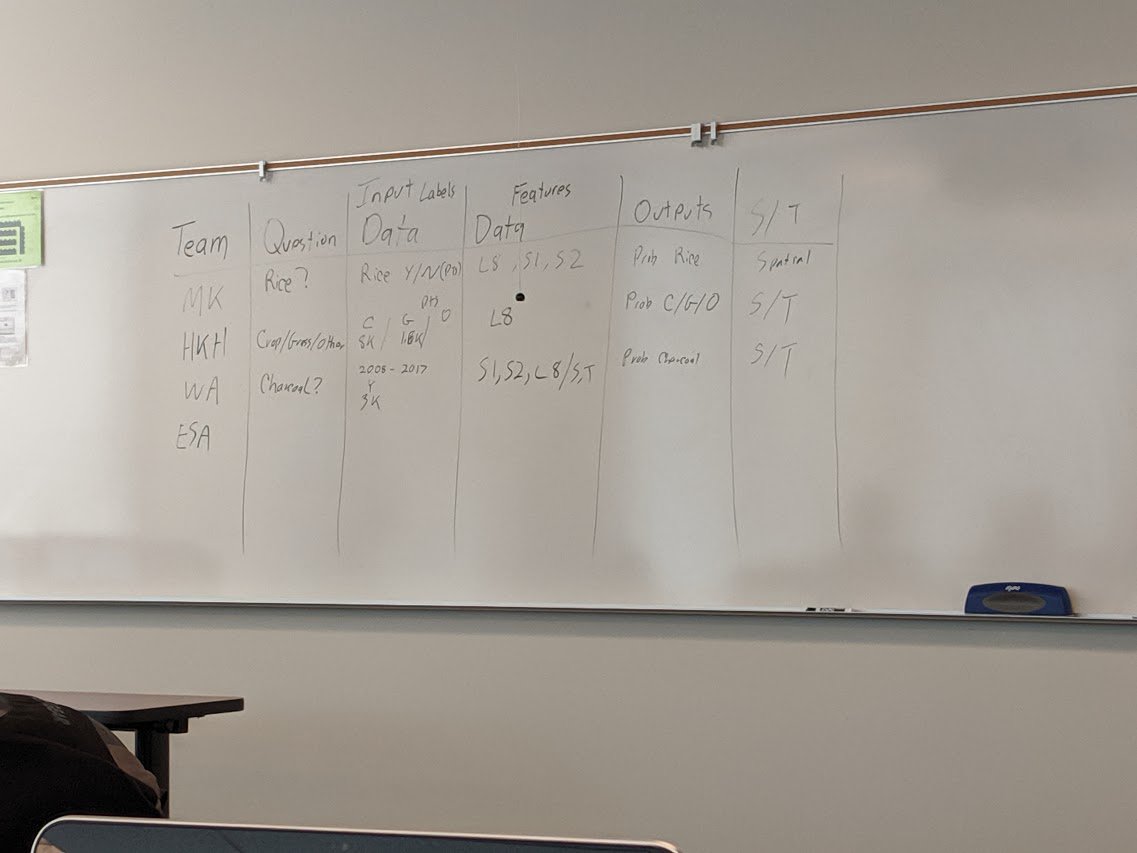 Team Question Input Labels Data Features Data Outputs S/T
MK Rice? Rice Y/N L8, S1, S2 Prob Rice Spatial
HKH Crop/Grass/Other C 8K / G 1.8K / O L8 Prob C/G/O S/T
WA Charcoal? 2008 - 2017 Y 3K S1, S2, L8/S,T Prob Charcoal S/T
ESA
EXPO